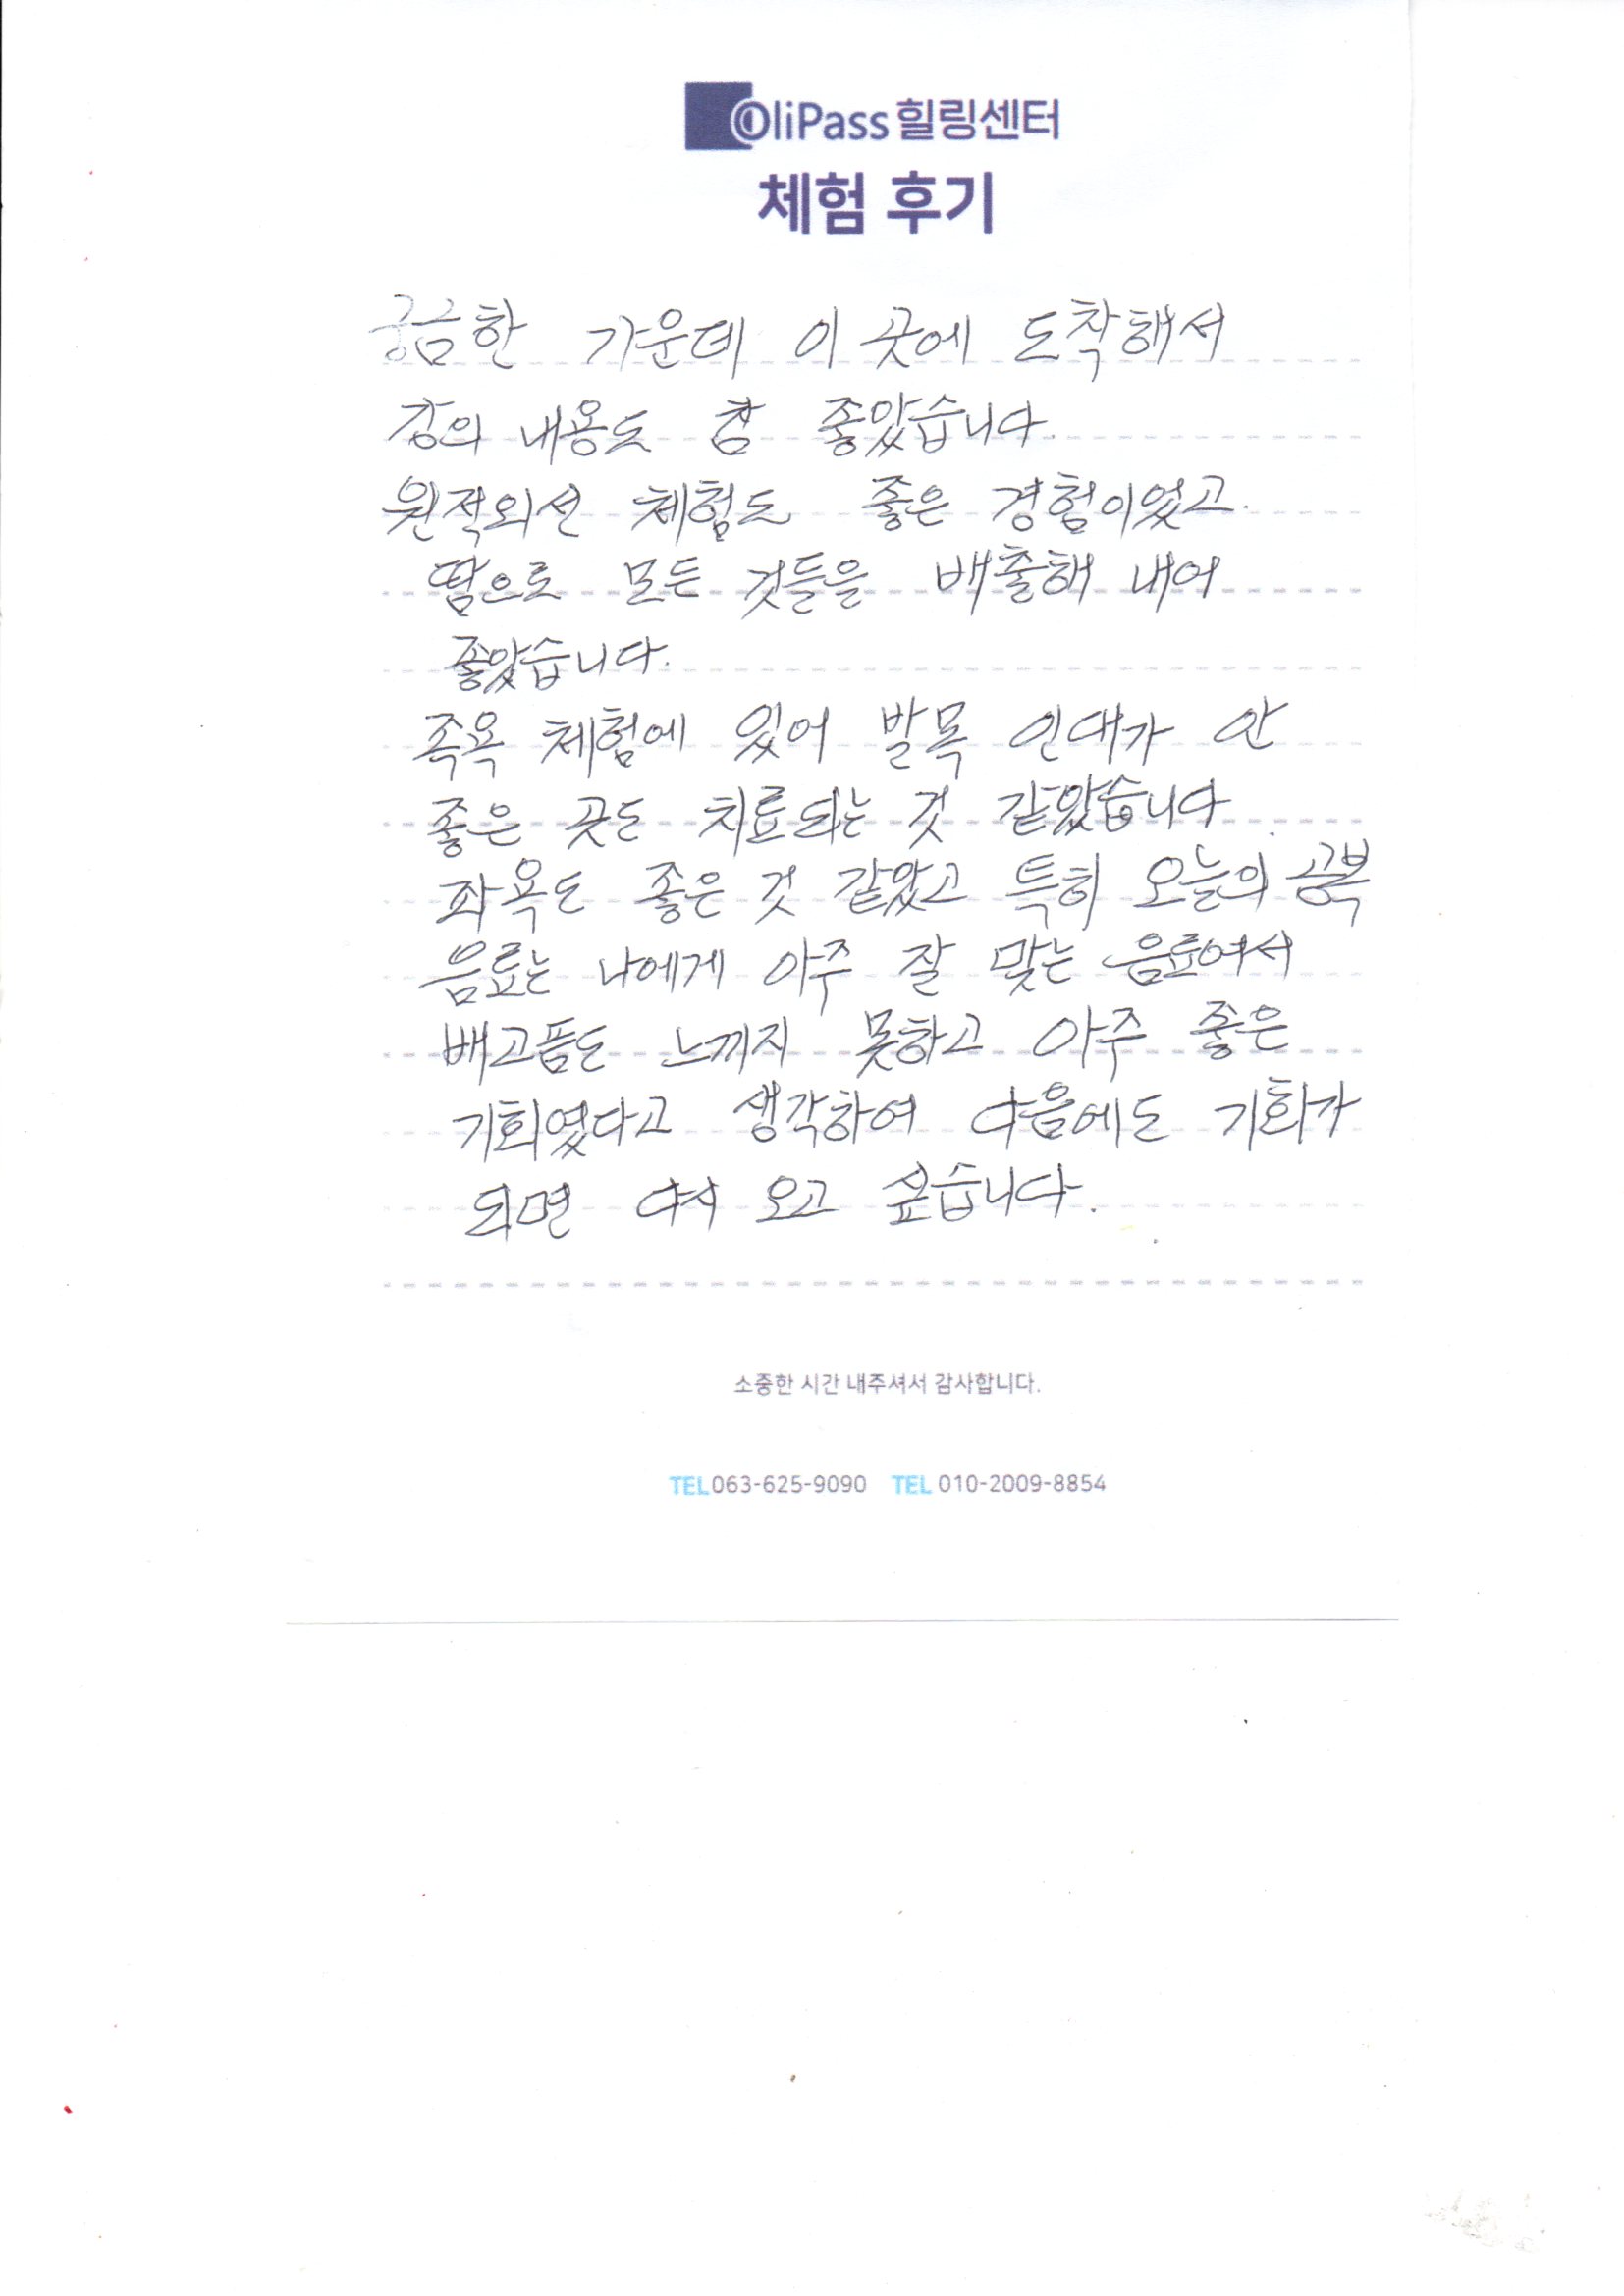 OliPass 힐링센터
체험 후기
궁금한 가운데 이 곳에 도착해서
강의 내용도 참 좋았습니다.
원적외선 체험도 좋은 경험이었고.
땀으로 모든 것들을 배출해 내어
좋았습니다.
족욕 체험에 있어 발목 인대가 안
좋은 곳도 치료되는 것 같았습니다.
좌욕도 좋은 것 같았고 특히 오늘의 공복
음료는 나에게 아주 잘 맞는 음료여서
배고픔도 느끼지 못하고 아주 좋은
기회였다고 생각하여 다음에도 기회가
되면 다시 오고 싶습니다.
소중한 시간 내주셔서 감사합니다.
TEL 063-625-9090 TEL 010-2009-8854